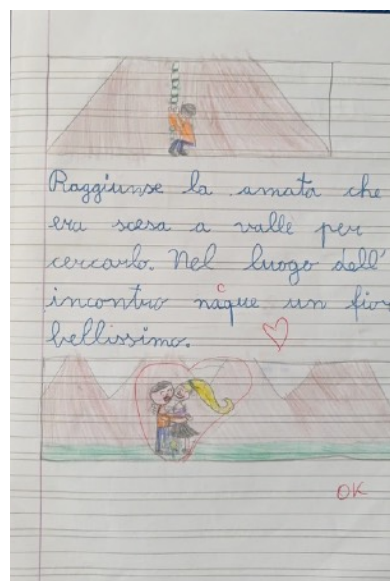 Raggiunse la amata che
era scesa a valle per
cercarlo. Nel luogo dell'
incontro nacque un fior
bellissimo.
OK